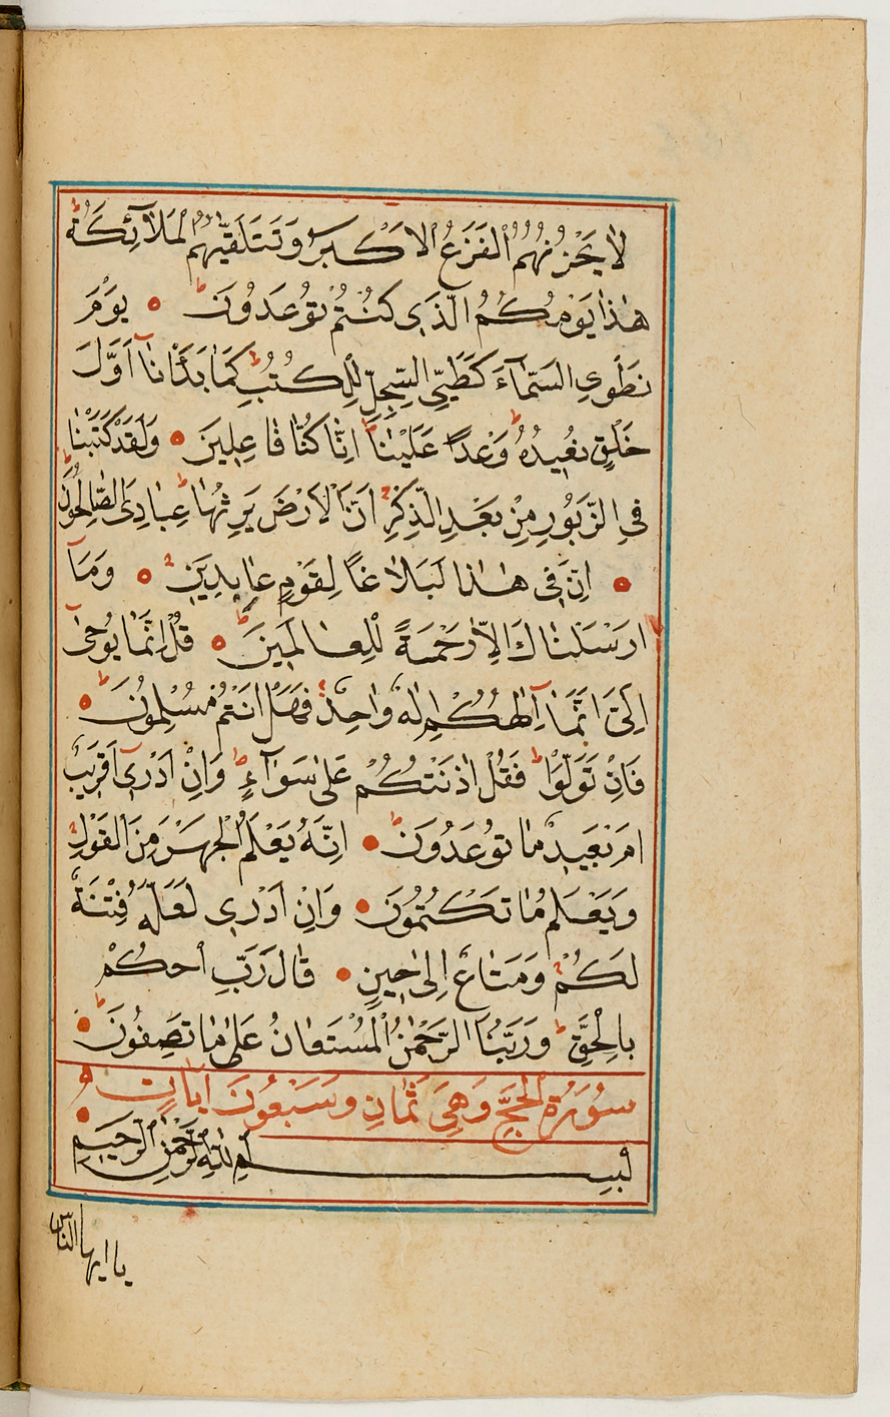 لَا يَحْزُنُهُمُ الْفَزَعُ الْاَكْبَرُ وَتَتَلَقّٰيهُمُ الْمَلَآئِكَةُ
هٰذَا يَوْمُكُمُ الَّذٖى كُنْتُمْ تُوعَدُونَ يَوْمَ
نَطْوِى السَّمَآءَ كَطَىِّ السِّجِلِّ لِلْكُتُبِ كَمَا بَدَأْنَآ اَوَّلَ
خَلْقٍ نُعٖيدُهُ وَعْدًا عَلَيْنَا اِنَّا كُنَّا فَاعِلٖينَ وَلَقَدْ كَتَبْنَا
فِى الزَّبُورِ مِنْ بَعْدِ الذِّكْرِ اَنَّ الْاَرْضَ يَرِثُهَا عِبَادِىَ الصَّالِحُونَ
اِنَّ فٖى هٰذَا لَبَلَاغًا لِقَوْمٍ عَابِدٖينَ وَمَآ
اَرْسَلْنَاكَ اِلَّا رَحْمَةً لِلْعَالَمٖينَ قُلْ اِنَّمَا يُوحٰٓى
اِلَىَّ اَنَّمَآ اِلٰهُكُمْ اِلٰهٌ وَاحِدٌ فَهَلْ اَنْتُمْ مُسْلِمُونَ
فَاِنْ تَوَلَّوْا فَقُلْ اٰذَنْتُكُمْ عَلٰى سَوَآءٍ وَاِنْ اَدْرٖٓى اَقَرٖيبٌ
اَمْ بَعٖيدٌ مَا تُوعَدُونَ اِنَّهُ يَعْلَمُ الْجَهْرَ مِنَ الْقَوْلِ
وَيَعْلَمُ مَا تَكْتُمُونَ وَاِنْ اَدْرٖى لَعَلَّهُ فِتْنَةٌ
لَكُمْ وَمَتَاعٌ اِلٰى حٖينٍ قَالَ رَبِّ احْكُمْ
بِالْحَقِّ وَرَبُّنَا الرَّحْمٰنُ الْمُسْتَعَانُ عَلٰى مَا تَصِفُونَ
سُورَةُ الْحَجِّ وَهِىَ ثَمَانٍ وَسَبْعُونَ اٰيَاتٍ
بِسْمِ اللّٰهِ الرَّحْمٰنِ الرَّحٖيمِ
يا ايها الناس